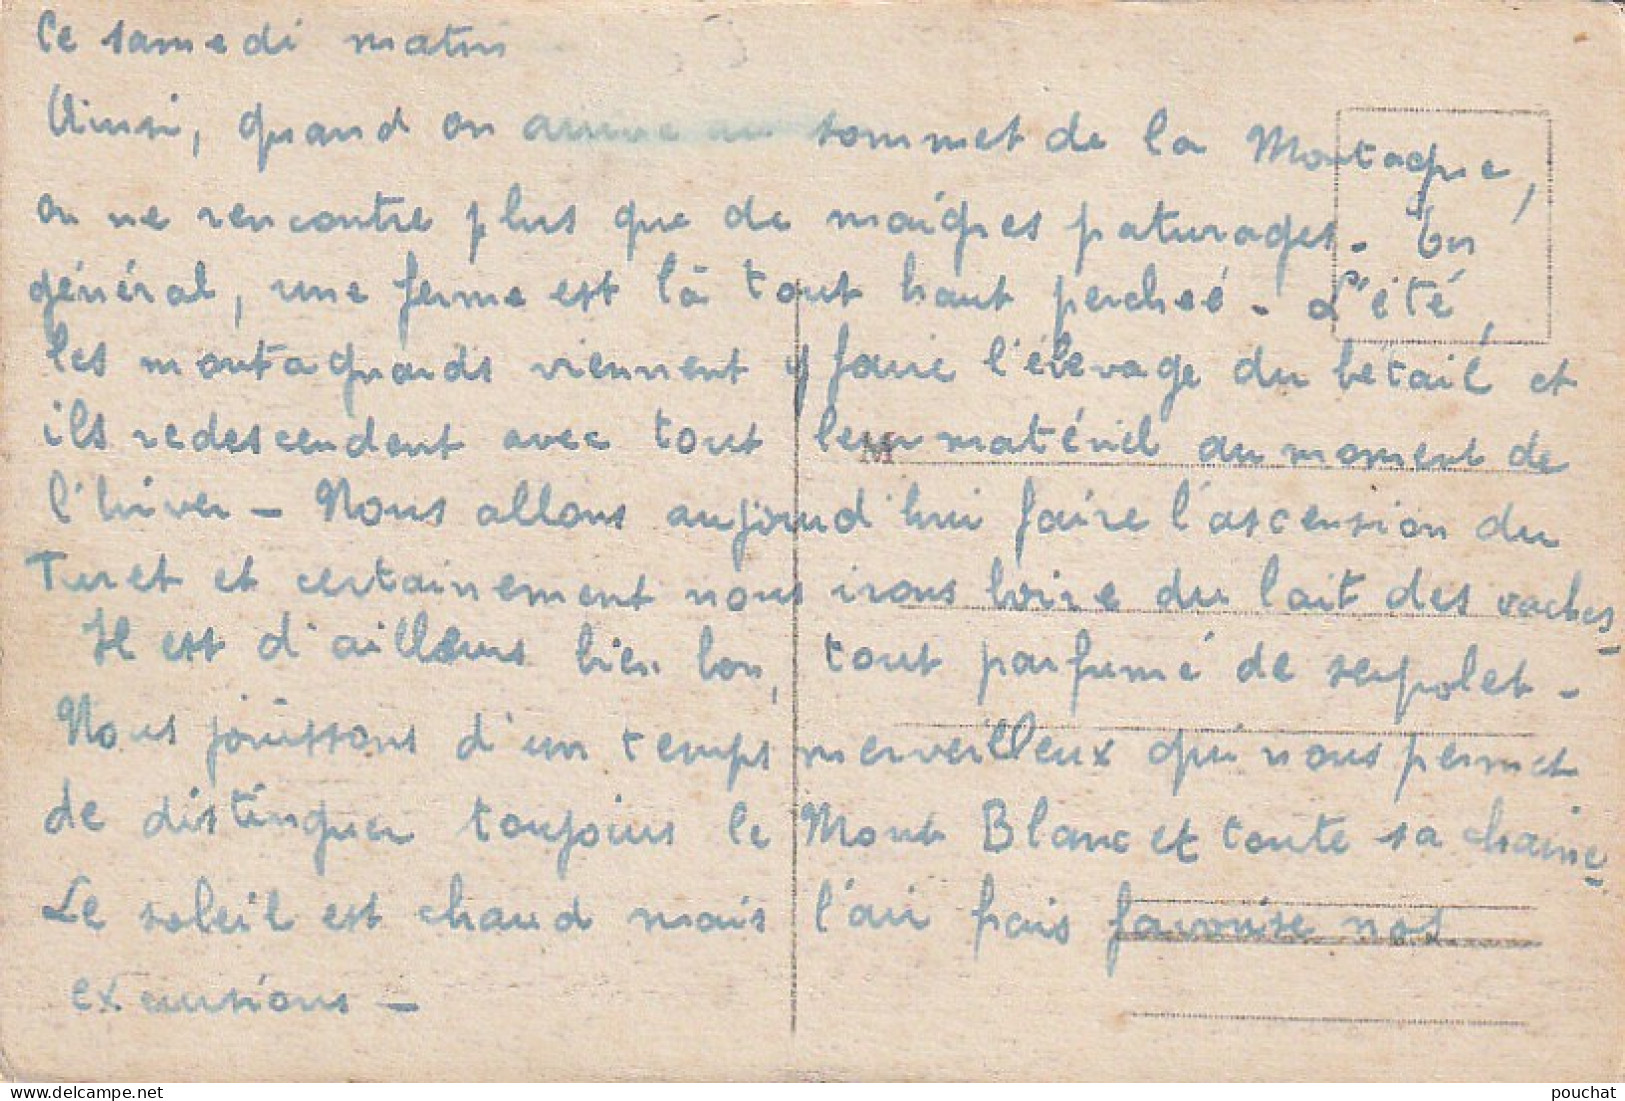 Ce samedi matin
Ainsi, quand on arrive au sommet de la Montagne,
on ne rencontre plus que de maigres paturages. En
général, une ferme est là tout haut perchée. L'été,
les montagnards viennent y faire l'élevage du bétail et
ils redescendent avec tout leur matériel au moment de
M
l'hiver - Nous allons aujourd'hui faire l'ascension du
Turet et certainement nous irons boire du lait des vaches.
Il est d'ailleurs bien bon, tout parfumé de serpolet -
Nous jouissons d'un temps merveilleux qui nous permet
de distinguer toujours le Mont Blanc et toute sa chaine.
Le soleil est chaud mais l'air frais favorise nos
excursions -
pouchat